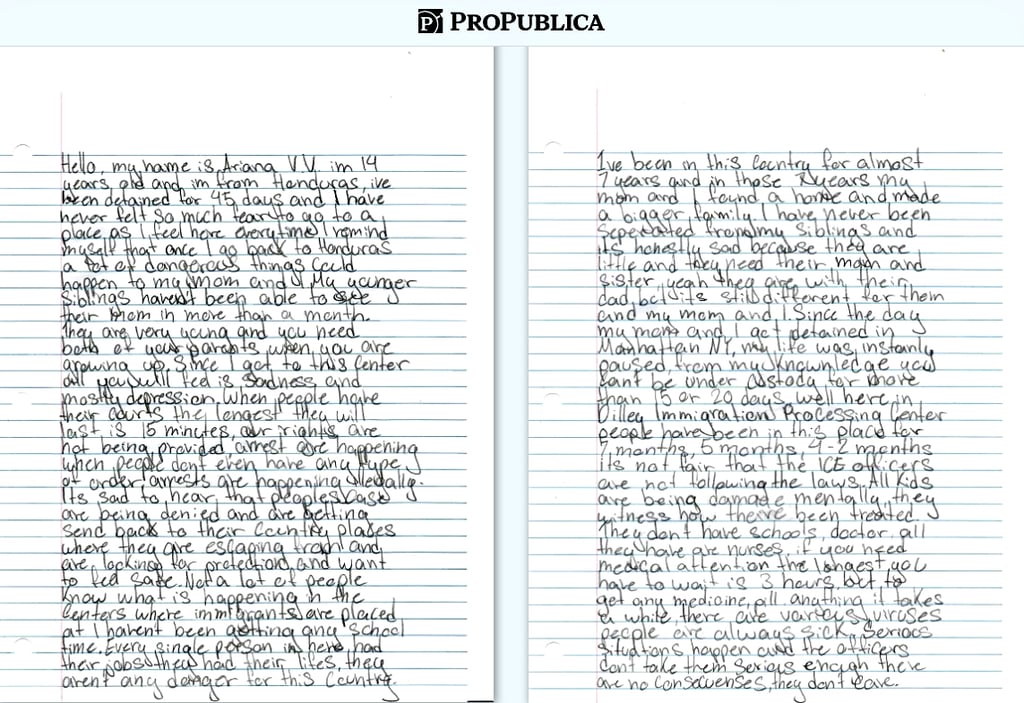 PROPUBLICA
Hello, my name is Ariana V.V. im 14
years old and im from Honduras, ive
been detained for 45 days and I have
never felt so much fear to go to a
place as I feel here everytime I remind
myself that once I go back to Honduras
a lot of dangerous things could
happen to my mom and I. My younger
siblings haven't been able to see
their mom in more than a month.
They are very young and you need
both of your parents when you are
growing up. Since I got to this Center
all you will feel is sadness and
mostly depression. When people have
their courts the longest they will
last is 15 minutes, our rights are
not being provided arrest are happening
when people dont even have any type
of order arrests are happening illegally.
Its sad to hear that peoples case
are being denied and are getting
send back to their Country places
where they are escaping from and
are looking for protection and want
to feel safe. Not a lot of people
know what is happening in the
Centers where immigrants are placed
at I havent been getting any school
time. Every single person in here had
their jobs they had their lifes, they
arent any danger for this Country.
Ive been in this Country for almost
7 years and in those years my
mom and I found a home and made
a bigger family. I have never been
seperated from my siblings and
its honestly sad because they are
little and they need their mom and
sister, yeah they are with their
dad, but its still different for them
and my mom and I. Since the day
my mom and I got detained in
Manhattan NY, my life was instanly
paused, from my knowledge you
cant be under custody for more
than 15 or 20 days, well here in
Dilley Immigration Processing Center
people have been in this place for
7 months, 5 months, 4-2 months
its not fair that the ICE officers
are not following the laws. All kids
are being damage mentally, they
witness how been treated
They don't have schools, doctor, all
they have are nurses, if you need
medical attention the longest you
have to wait is 3 hours, but to
get any medicine, pill, anything it takes
a while, there are various viruses
people are always sick. Serious
situations happen and the officers
dont take them serious enough there
are no consecuenses, they don't care.